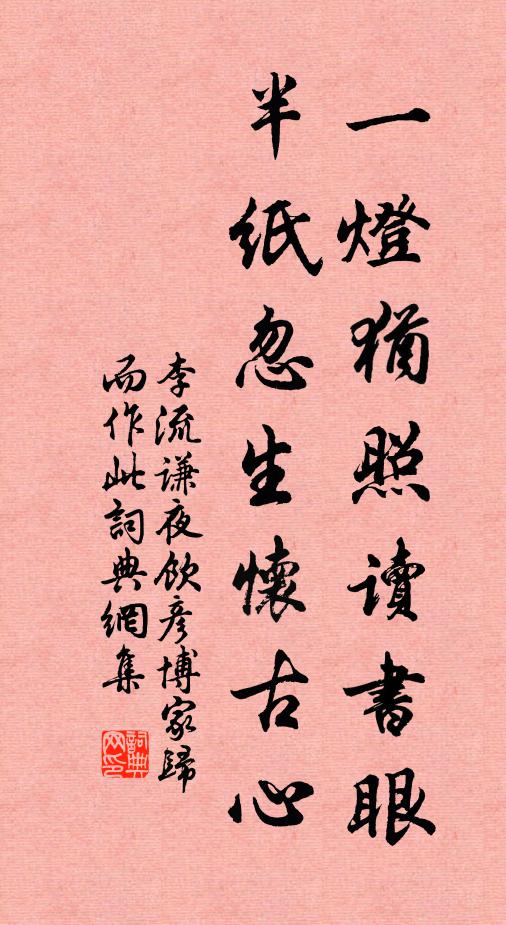 一燈猶照讀書眼
半紙忽生懷古心
李流謙夜飲彥博家歸
而作此詞典網集
詞典
网印